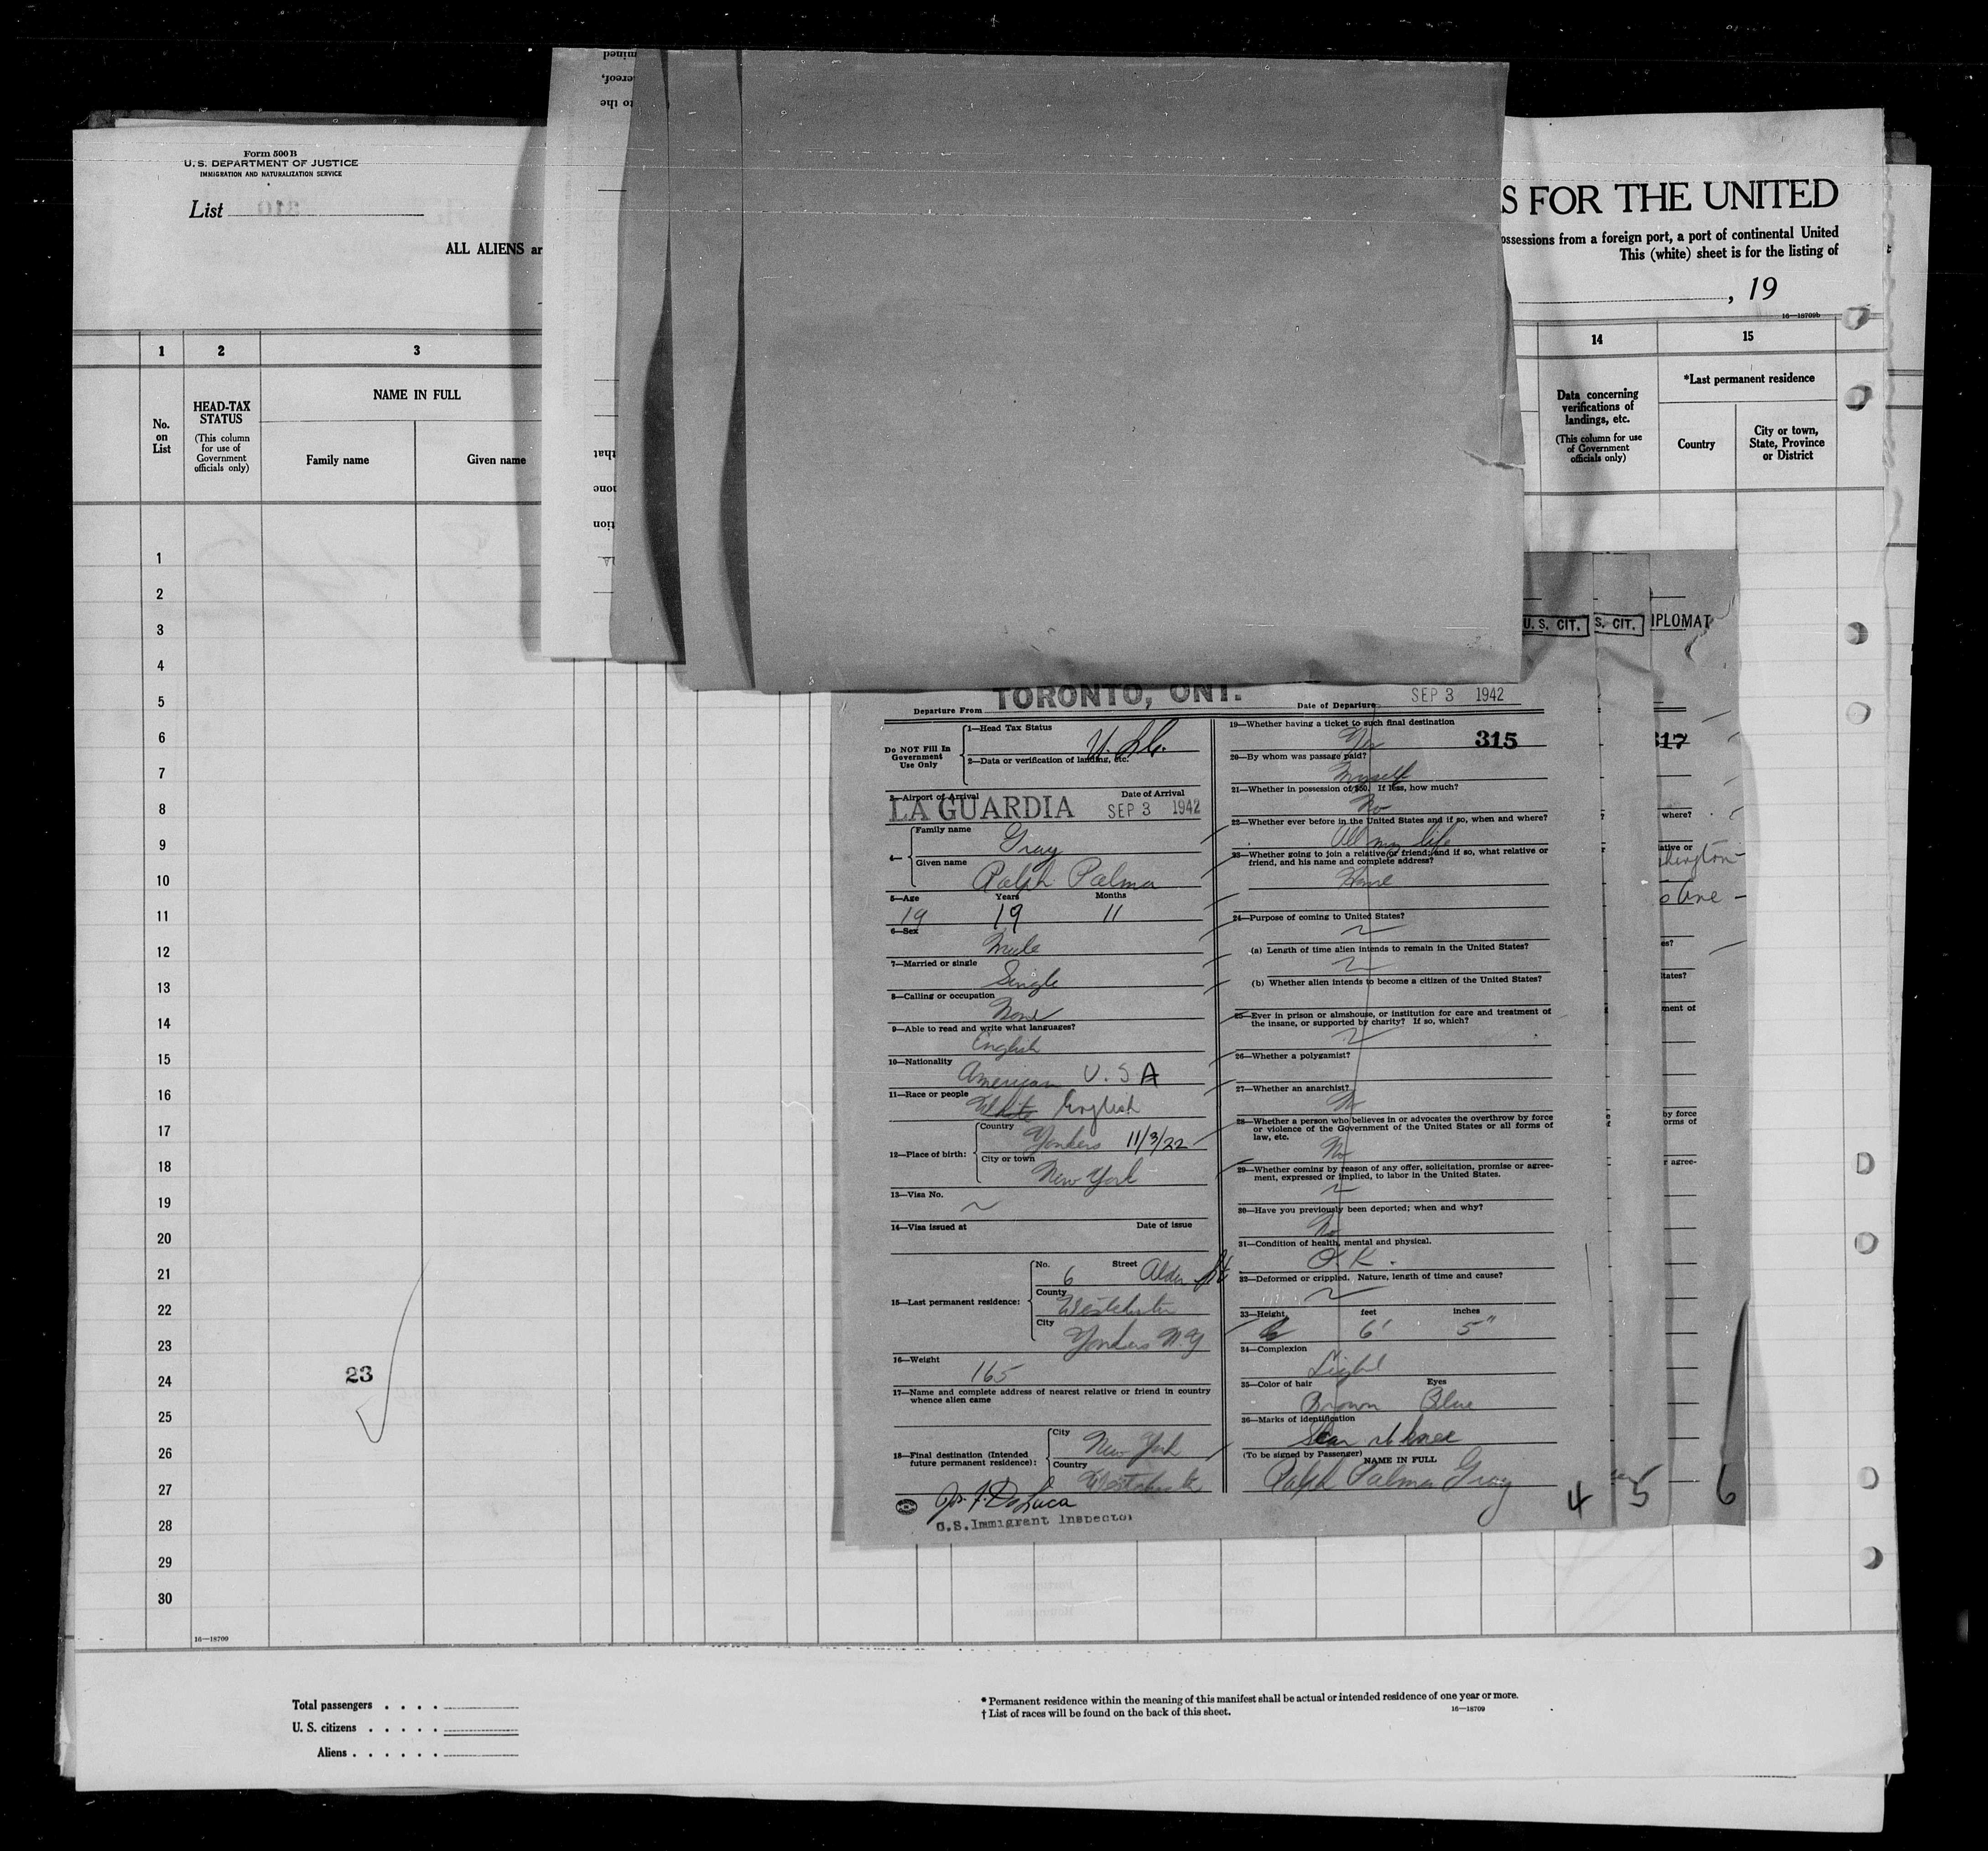 Form 500 B
U. S. DEPARTMENT OF JUSTICE
IMMIGRATION AND NATURALIZATION SERVICE
List
ALL ALIENS ar
S FOR THE UNITED
ossessions from a foreign port, a port of continental United
This (white) sheet is for the listing of
, 19
16—18709b
1 2 3 14 15
No. on List
HEAD-TAX STATUS
(This column for use of Government officials only)
NAME IN FULL
Family name Given name
Data concerning verifications of landings, etc.
(This column for use of Government officials only)
*Last permanent residence
Country
City or town, State, Province or District
1
2
3
4
5
6
7
8
9
10
11
12
13
14
15
16
17
18
19
20
21
22
23
24
25
26
27
28
29
30
23
16—18709
U. S. CIT.
S. CIT.
IPLOMAT
Departure From TORONTO, ONT.
Date of Departure SEP 3 1942
Do NOT Fill In Government Use Only
1—Head Tax Status
2—Data or verification of landing, etc.
3—Airport of Arrival LA GUARDIA
Date of Arrival SEP 3 1942
4— Family name Gray
Given name Ralph Palma
5—Age 19 Years 19 Months 11
6—Sex Male
7—Married or single Single
8—Calling or occupation None
9—Able to read and write what languages?
English
10—Nationality American U.S.A
11—Race or people White English
12—Place of birth: Country Yonkers 11/3/22
City or town New York
13—Visa No.
14—Visa issued at Date of issue
15—Last permanent residence: No. 6 Street Alder St
County Westchester
City Yonkers N.Y
16—Weight 165
17—Name and complete address of nearest relative or friend in country whence alien came
18—Final destination (Intended future permanent residence): City New York
Country Westchester
Jos. F. DeLuca
U.S.Immigrant Inspector
19—Whether having a ticket to such final destination
Yes
315
20—By whom was passage paid?
Myself
21—Whether in possession of $50. If less, how much?
No
22—Whether ever before in the United States and if so, when and where?
All my life
23—Whether going to join a relative or friend; and if so, what relative or
friend, and his name and complete address?
Home
24—Purpose of coming to United States?
(a) Length of time alien intends to remain in the United States?
(b) Whether alien intends to become a citizen of the United States?
25—Ever in prison or almshouse, or institution for care and treatment of
the insane, or supported by charity? If so, which?
26—Whether a polygamist?
27—Whether an anarchist?
No
28—Whether a person who believes in or advocates the overthrow by force
or violence of the Government of the United States or all forms of
law, etc.
No
29—Whether coming by reason of any offer, solicitation, promise or agree-
ment, expressed or implied, to labor in the United States.
30—Have you previously been deported; when and why?
No
31—Condition of health, mental and physical.
O.K.
32—Deformed or crippled. Nature, length of time and cause?
33—Height feet inches
6' 5"
34—Complexion
Light
35—Color of hair Eyes
Brown Blue
36—Marks of identification
Scar rt knee
(To be signed by Passenger) NAME IN FULL
Ralph Palma Gray
4 5 6
317
where?
ative or
shington
tates?
ment of
by force
orms of
r agree-
Total passengers . . . .
U. S. citizens . . . . .
Aliens . . . . . .
* Permanent residence within the meaning of this manifest shall be actual or intended residence of one year or more.
† List of races will be found on the back of this sheet.
16—18709